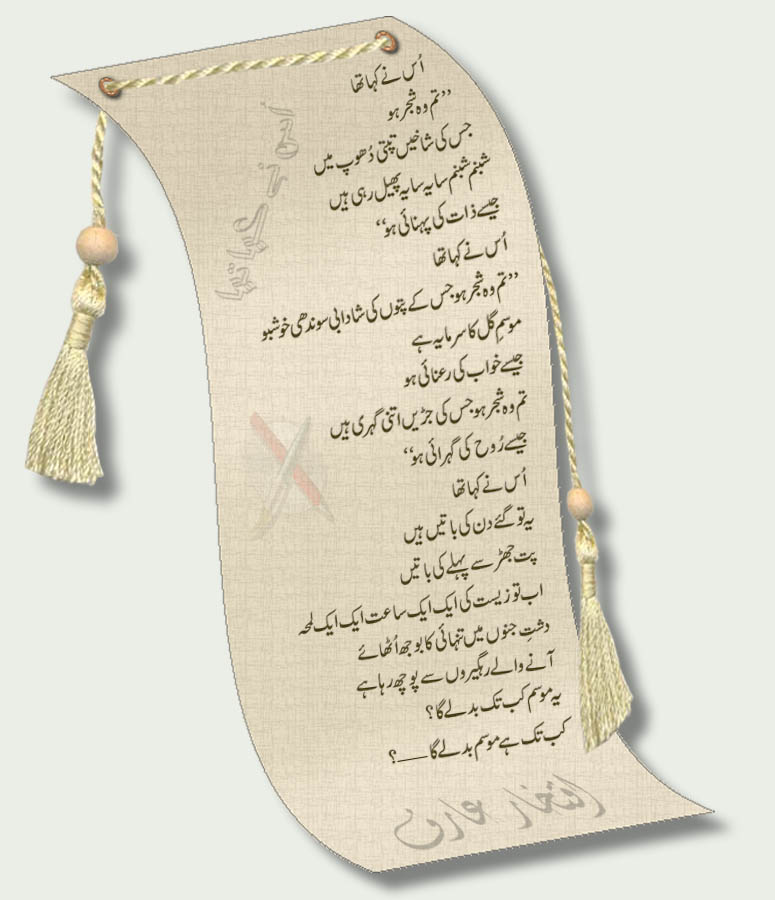 اُس نے کہا تھا
اُس نے کہا تھا
”تم وہ شجر ہو
جس کی شاخیں تپتی دُھوپ میں
شبنم شبنم سایہ سایہ پھیل رہی ہیں
جیسے ذات کی پہنائی ہو“
اُس نے کہا تھا
”تم وہ شجر ہو جس کے پتوں کی شادابی سوندھی خوشبو
موسمِ گل کا سرمایہ ہے
جیسے خواب کی رعنائی ہو
تم وہ شجر ہو جس کی جڑیں اتنی گہری ہیں
جیسے رُوح کی گہرائی ہو“
اُس نے کہا تھا
یہ تو گئے دن کی باتیں ہیں
پت جھڑ سے پہلے کی باتیں
اب تو زیست کی ایک ایک ساعت ایک ایک لمحہ
دشتِ جنوں میں تنہائی کا بوجھ اُٹھائے
آنے والے رہگیروں سے پوچھ رہا ہے
یہ موسم کب تک بدلے گا؟
کب تک ہے موسم بدلے گا ــــ؟
افتخار عارف